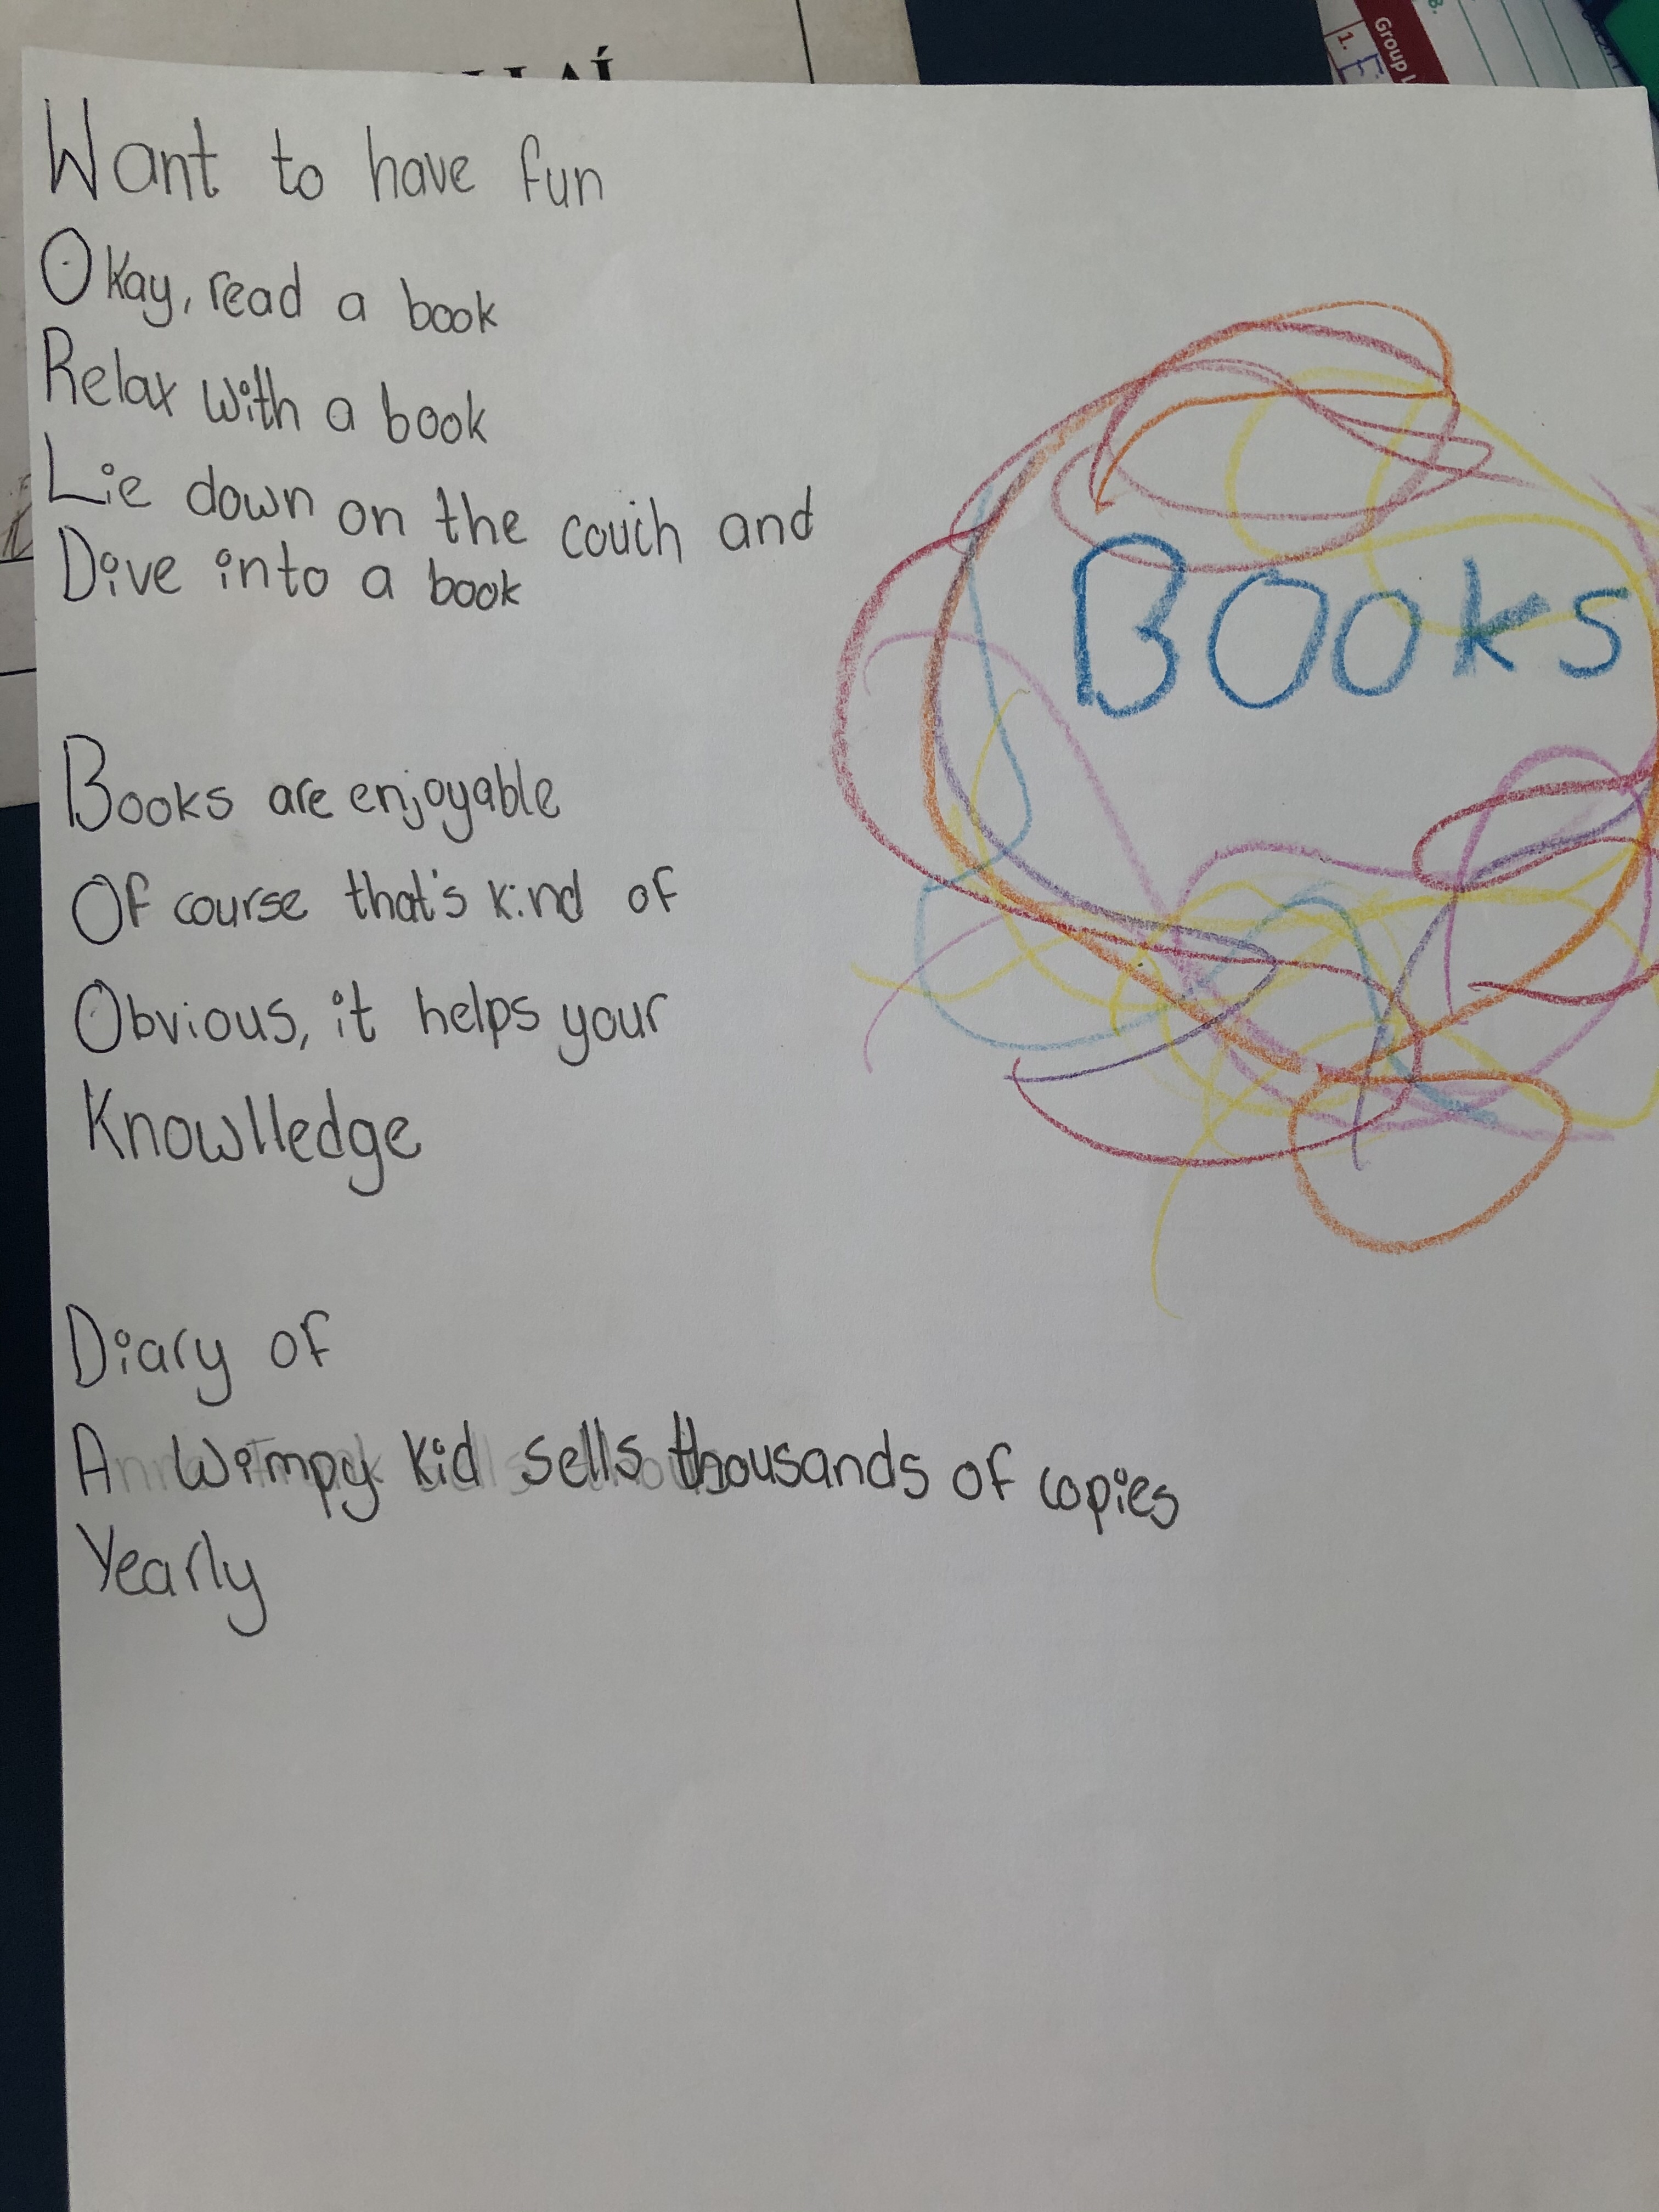 Want to have fun
Okay, read a book
Relax with a book
Lie down on the couch and
Dive into a book
Books
Books are enjoyable
Of course that's kind of
Obvious, it helps your
Knowlledge
Diary of
A Wimpy Kid sells thousands of copies
Yearly
Group
1.
8.